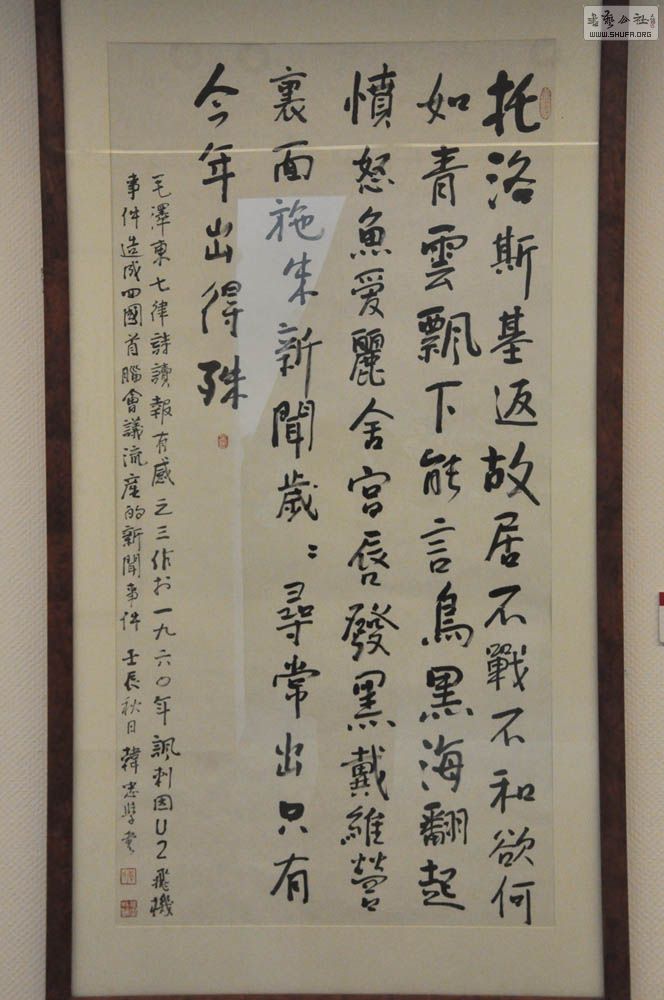 托洛斯基返故居不戰不和欲何
如青雲飄下能言鳥黑海翻起
憤怒魚愛麗舍宮唇發黑戴維營
裏面施朱新聞歲〻尋常出只有
今年出得殊
毛澤東七律詩讀報有感之三作於一九六〇年諷刺因U2飛機
事件造成四國首腦會議流產的新聞事件 壬辰秋日韓忠學書
書藝公社
WWW.SHUFA.ORG